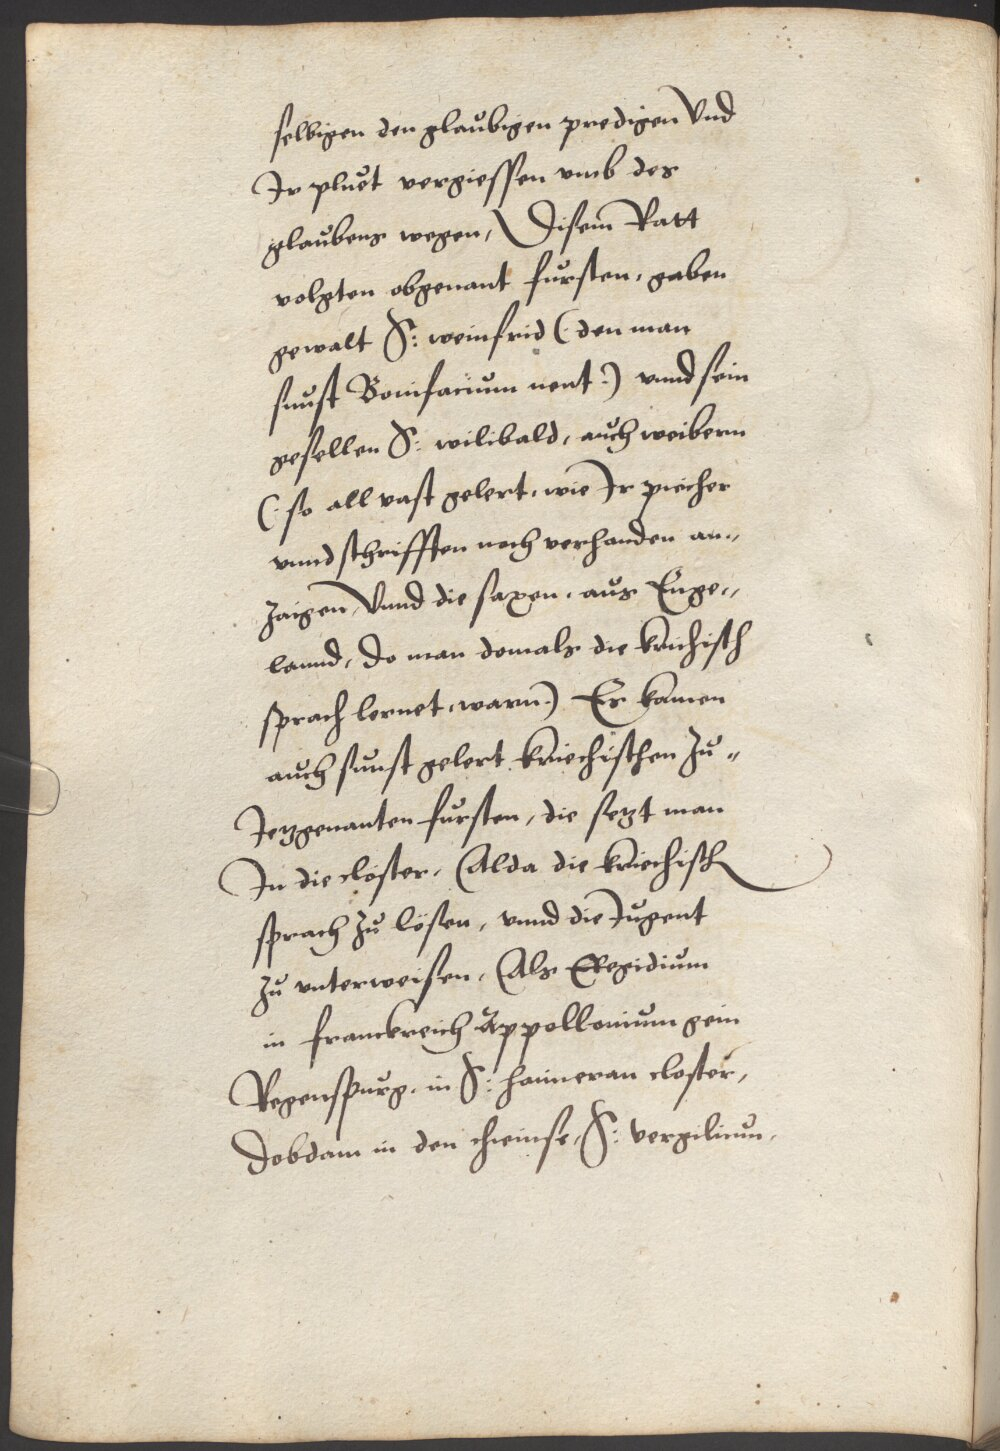 selbigen den glaubigen predigen Vnd
Ir pluet vergiessen vmb des
glaubens wegen, Disem Ratt
volgten obgenant fursten, gaben
gewalt S: weinfrid (: den man
sunst Bonifacium nent :) vnnd sein
gesellen S: wilibald, auch weibern
(: so all vast gelert, wie Ir piecher
vnnd schrifften noch verhanden an„
zaigen, Vnnd die saxen, aus Enge„
lannd, do man domals die krichisch
sprach lernet, warn :) Es kamen
auch sunst gelert kriechischen zu„
Jetzgenanten fursten, die setzt man
In die closter, Alda die kriechisch
sprach zu lösen, vnnd die Jugent
zu vnterweisen, Als Egidium
in franckreich Appollonium gein
Regenspurg, in S: haimeran closter,
Dobdam in den chiemse, S: vergilium,